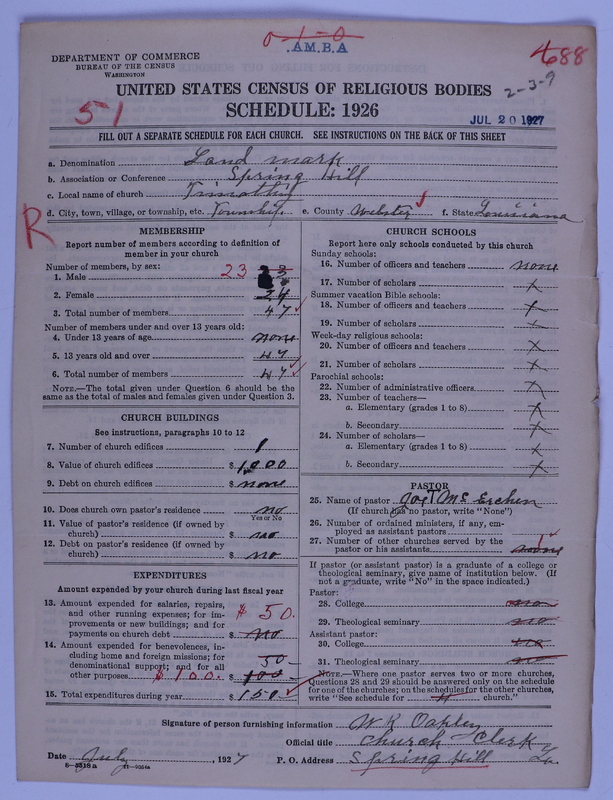 0-1-0
.A.M.B.A
4688
DEPARTMENT OF COMMERCE
BUREAU OF THE CENSUS
WASHINGTON
2-3-9
UNITED STATES CENSUS OF RELIGIOUS BODIES
51
SCHEDULE: 1926
JUL 20 1927
FILL OUT A SEPARATE SCHEDULE FOR EACH CHURCH. SEE INSTRUCTIONS ON THE BACK OF THIS SHEET
a. Denomination Land mark
b. Association or Conference Spring Hill
c. Local name of church Timothy
d. City, town, village, or township, etc. Township e. County Webster f. State Louisiana
R
MEMBERSHIP
Report number of members according to definition of
member in your church
Number of members, by sex:
1. Male 23 23
2. Female 24
3. Total number of members 47
Number of members under and over 13 years old:
4. Under 13 years of age none
5. 13 years old and over 47
6. Total number of members 47
NOTE.—The total given under Question 6 should be the
same as the total of males and females given under Question 3.
CHURCH BUILDINGS
See instructions, paragraphs 10 to 12
7. Number of church edifices 1
8. Value of church edifices $ 1000
9. Debt on church edifices $ none
10. Does church own pastor's residence no
Yes or No
11. Value of pastor's residence (if owned by
church) $ no
12. Debt on pastor's residence (if owned by
church) $ no
EXPENDITURES
Amount expended by your church during last fiscal year
13. Amount expended for salaries, repairs,
and other running expenses; for im-
provements or new buildings; and for
payments on church debt $ no
$ 50.
14. Amount expended for benevolences, in-
cluding home and foreign missions; for
denominational support; and for all
other purposes $ 100
$ 100.
50
15. Total expenditures during year $ 150
CHURCH SCHOOLS
Report here only schools conducted by this church
Sunday schools:
16. Number of officers and teachers none
17. Number of scholars x
Summer vacation Bible schools:
18. Number of officers and teachers x
19. Number of scholars x
Week-day religious schools:
20. Number of officers and teachers x
21. Number of scholars x
Parochial schools:
22. Number of administrative officers x
23. Number of teachers—
a. Elementary (grades 1 to 8) x
b. Secondary x
24. Number of scholars—
a. Elementary (grades 1 to 8) x
b. Secondary x
PASTOR
25. Name of pastor
(If church has no pastor, write "None")
26. Number of ordained ministers, if any, em-
ployed as assistant pastors
27. Number of other churches served by the
pastor or his assistants none 1
If pastor (or assistant pastor) is a graduate of a college or
theological seminary, give name of institution below. (If
not a graduate, write "No" in the space indicated.)
Pastor:
28. College no
29. Theological seminary no
Assistant pastor:
30. College no
31. Theological seminary no
NOTE.—Where one pastor serves two or more churches,
Questions 28 and 29 should be answered only on the schedule
for one of the churches; on the schedules for the other churches,
write "See schedule for church."
Signature of person furnishing information W R Oakley
Official title Church Clerk
Date July, 1927 P. O. Address Spring Hill La.
8-5518a 11-9554a